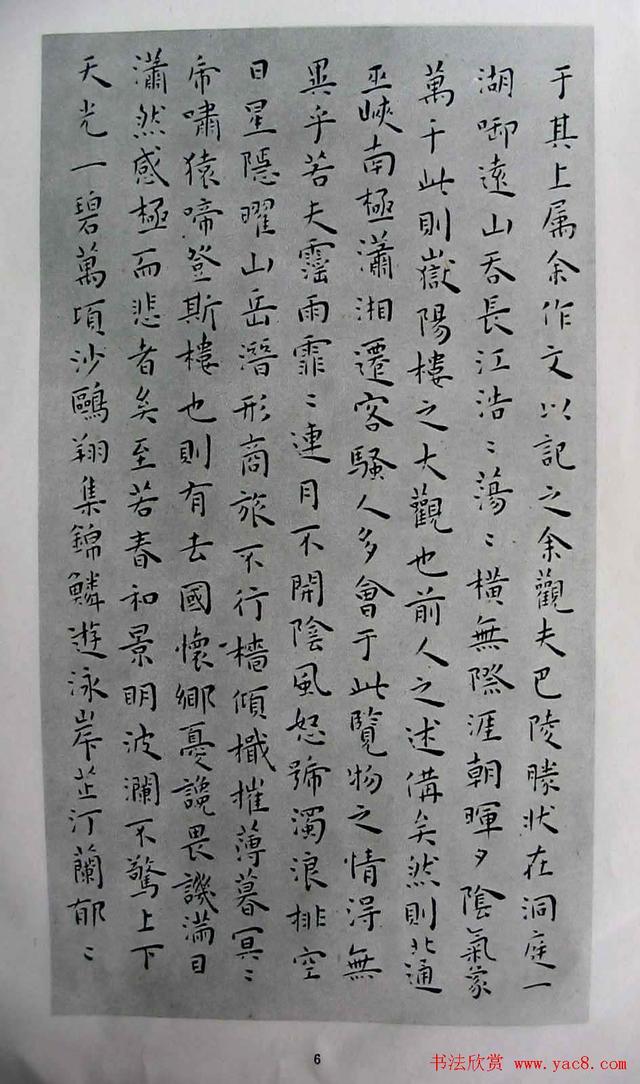 于其上属余作文以記之余觀夫巴陵勝状在洞庭一
湖啣遠山吞長江浩〻蕩〻橫無際涯朝暉夕陰氣象
萬千此則嶽陽樓之大觀也前人之述備矣然則北通
巫峽南極瀟湘遷客騷人多會于此覽物之情淂無
異乎若夫霪雨霏〻連月不開陰風怒號濁浪排空
日星隱曜山岳潛形商旅不行檣傾檝摧薄暮冥〻
帝嘯猿啼登斯樓也則有去國懷鄉憂讒畏譏滿目
瀟然感極而悲者矣至若春和景明波瀾不驚上下
天光一碧萬頃沙鷗翔集錦鱗遊泳岸芷汀蘭郁〻
6
书法欣赏 www.yac8.com